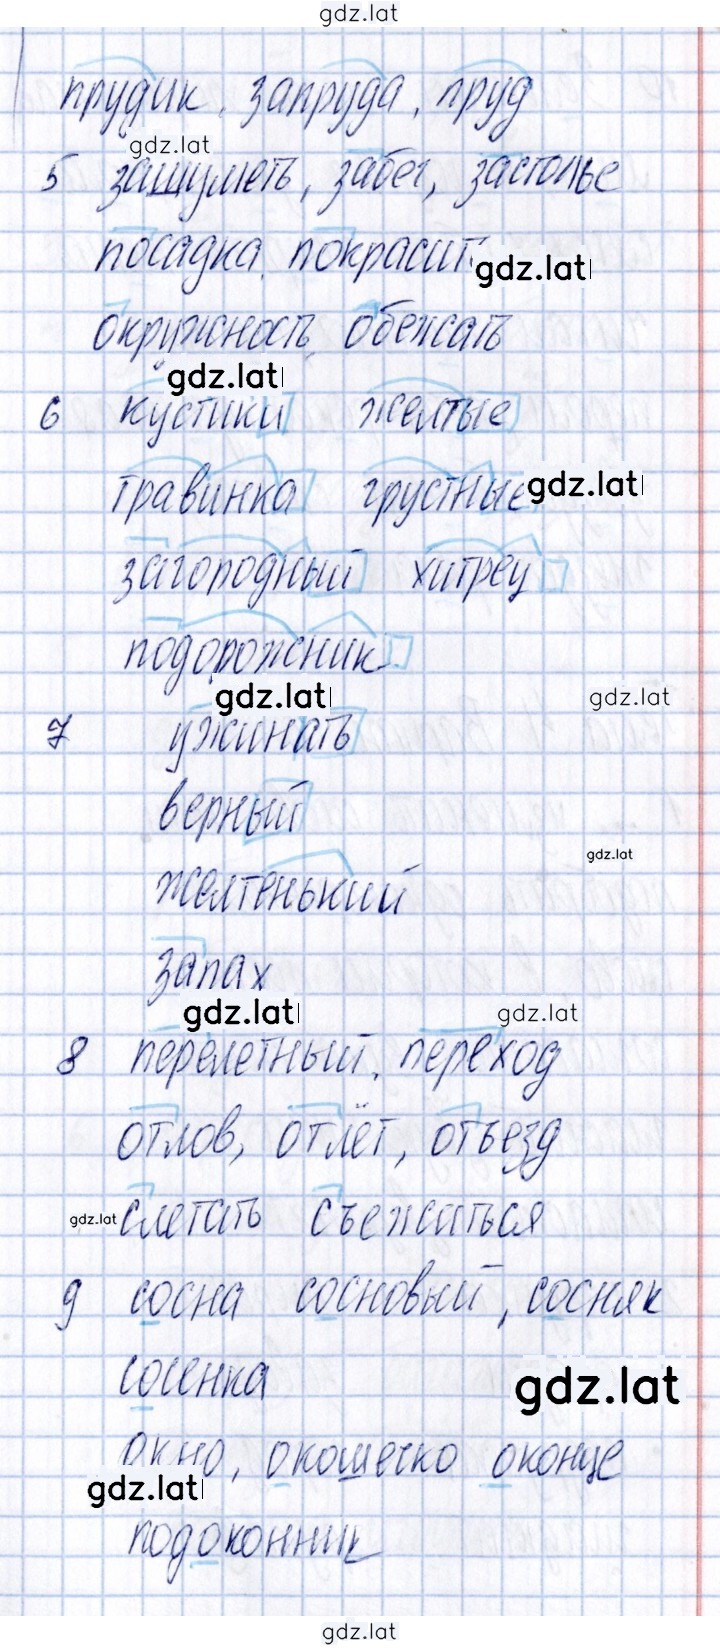 gdz.lat
прудик, запруда, пруд
gdz.lat
5 зашуметь, забег, застолье
посадка, покрасить
gdz.lat
окружность, обежать
gdz.lat
6 кустики желтые
травинка грустные
gdz.lat
загородный хитрец
подорожник
gdz.lat
gdz.lat
7 ужинать
верный
gdz.lat
желтенький
запах
gdz.lat
gdz.lat
8 перелетный, переход
отлов, отлёт, отъезд
gdz.lat
слетать съежиться
9 сосна сосновый, сосняк
сосенка
gdz.lat
окно, окошечко оконце
gdz.lat
подоконник
gdz.lat